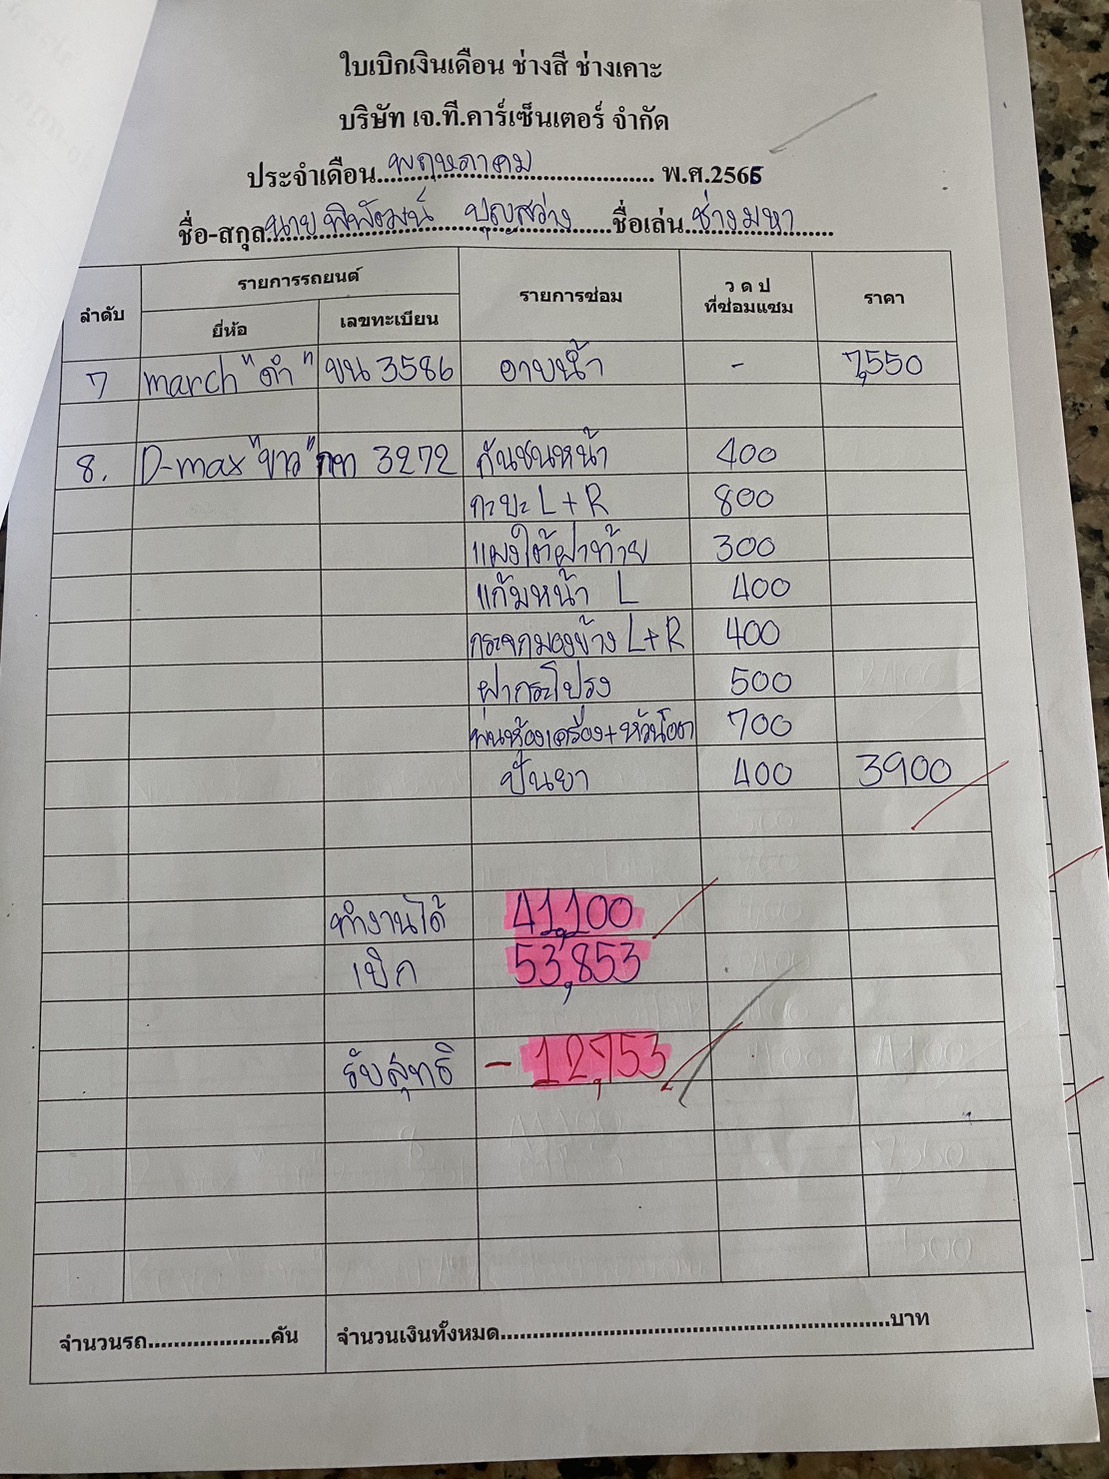 ใบเบิกเงินเดือน ช่างสี ช่างเคาะ
บริษัท เจ.ที.คาร์เซ็นเตอร์ จำกัด
ประจำเดือน..พฤษภาคม.................... พ.ศ.2566
ชื่อ-สกุล นายพิพัฒน์ บุญสว่าง......ชื่อเล่น..ช่างมหา......
ลำดับ รายการรถยนต์ รายการซ่อม ว ด ป ที่ซ่อมแซม ราคา
ยี่ห้อ เลขทะเบียน
7 march "ดำ" ขน 3586 อาบน้ำ - 7,550
8. D-max "ขาว" กท 3272 กันชนหน้า 400
กะบะ L+R 800
แผงใต้ฝาท้าย 300
แก้มหน้า L 400
กระจกมองข้าง L+R 400
ฝากระโปรง 500
พ่นห้องเครื่อง+หัวน๊อต 700
ปั่นยา 400 3900
ทำงานได้ 41,100
เบิก 53,853
รับสุทธิ - 12,753
จำนวนรถ...................คัน จำนวนเงินทั้งหมด............................................................บาท